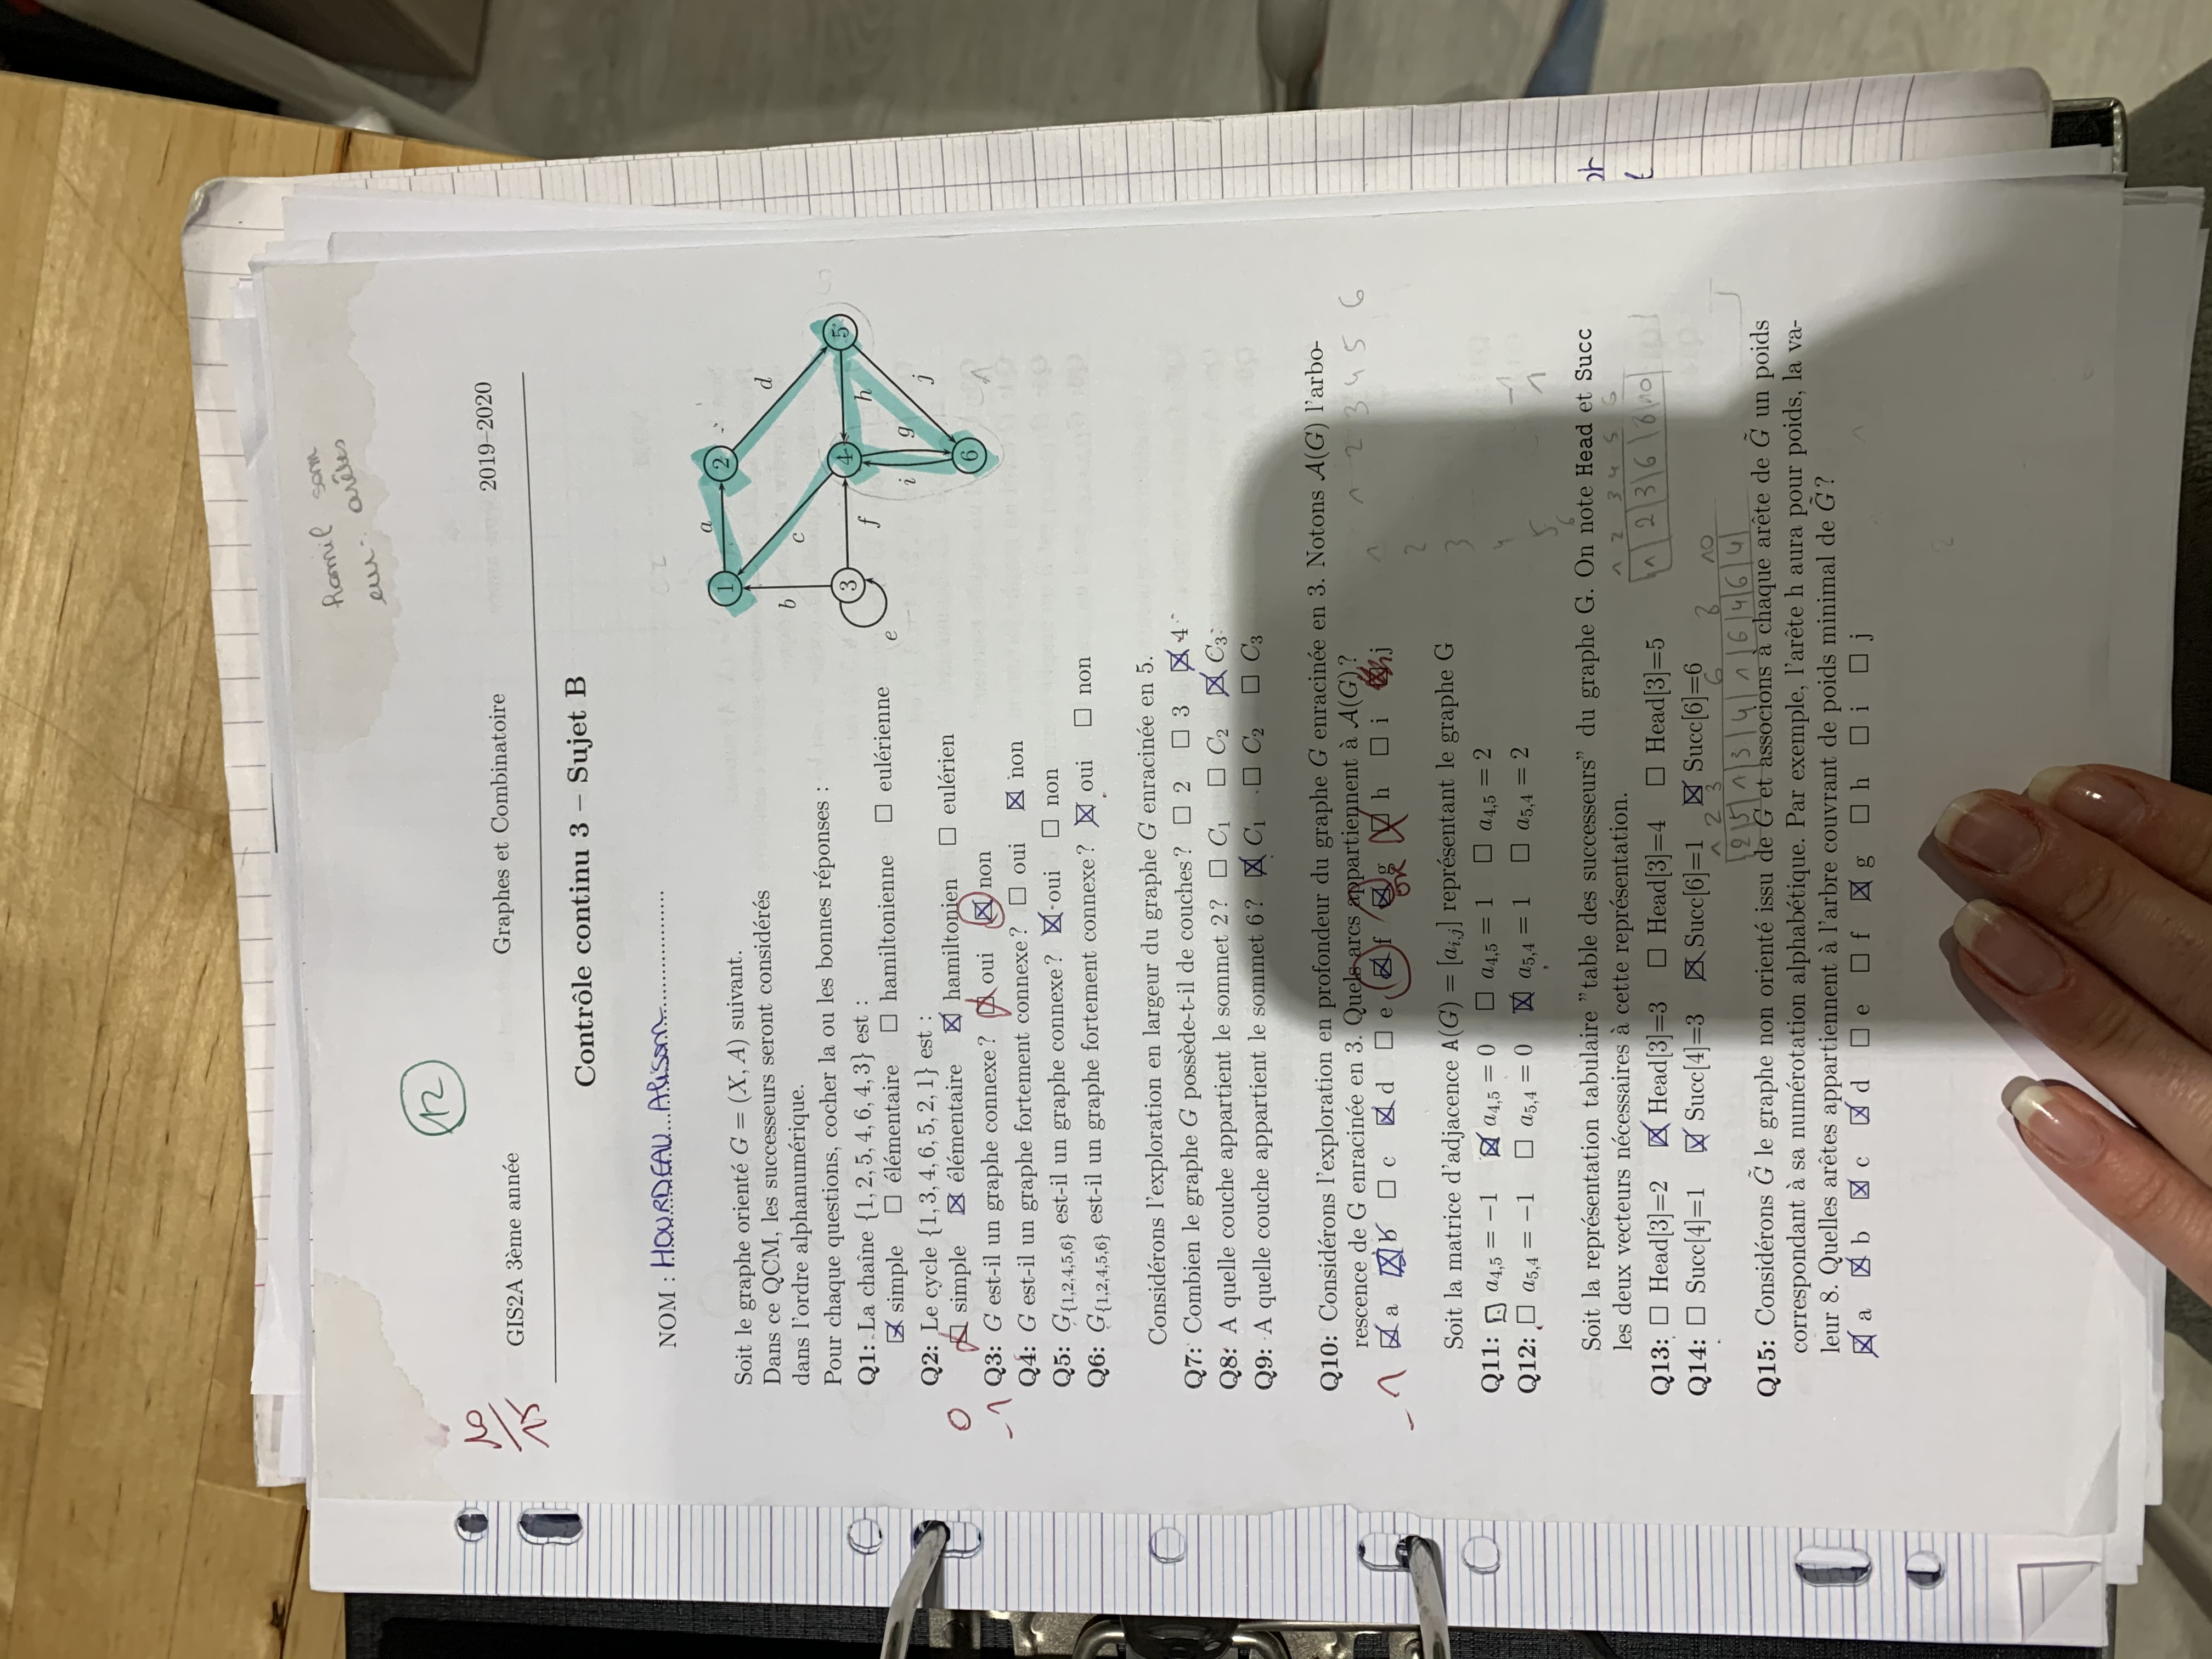 hamil som
eu : arêtes
12
10
15
GIS2A 3ème année Graphes et Combinatoire 2019–2020
Contrôle continu 3 – Sujet B
NOM : HOURDEAU Alison
Soit le graphe orienté G = (X, A) suivant.
Dans ce QCM, les successeurs seront considérés
dans l'ordre alphanumérique.
Pour chaque questions, cocher la ou les bonnes réponses :
1 a 2
b c d
3 f 4 h 5
e i g j
6
1
Q1: La chaîne {1, 2, 5, 4, 6, 4, 3} est :
☒ simple ☐ élémentaire ☐ hamiltonienne ☐ eulérienne
Q2: Le cycle {1, 3, 4, 6, 5, 2, 1} est :
0 ☐ simple ☒ élémentaire ☒ hamiltonien ☐ eulérien
-1 Q3: G est-il un graphe connexe ? ☐ oui ☒ non
Q4: G est-il un graphe fortement connexe ? ☐ oui ☒ non
Q5: G{1,2,4,5,6} est-il un graphe connexe ? ☒ oui ☐ non
Q6: G{1,2,4,5,6} est-il un graphe fortement connexe ? ☒ oui ☐ non
Considérons l'exploration en largeur du graphe G enracinée en 5.
Q7: Combien le graphe G possède-t-il de couches ? ☐ 2 ☐ 3 ☒ 4
Q8: A quelle couche appartient le sommet 2 ? ☐ C1 ☐ C2 ☒ C3
Q9: A quelle couche appartient le sommet 6 ? ☒ C1 ☐ C2 ☐ C3
Q10: Considérons l'exploration en profondeur du graphe G enracinée en 3. Notons A(G) l'arbo-
rescence de G enracinée en 3. Quels arcs appartiennent à A(G) ?
-1 ☒ a ☒ b ☐ c ☒ d ☐ e ☒ f ☒ g ☐ h ☐ i ☒ j
OK
1 2 3 4 5 6
1
2
3
4 -1
5 1
6
Soit la matrice d'adjacence A(G) = [ai,j] représentant le graphe G
Q11: ☐ a4,5 = −1 ☒ a4,5 = 0 ☐ a4,5 = 1 ☐ a4,5 = 2
Q12: ☐ a5,4 = −1 ☐ a5,4 = 0 ☒ a5,4 = 1 ☐ a5,4 = 2
Soit la représentation tabulaire "table des successeurs" du graphe G. On note Head et Succ
les deux vecteurs nécessaires à cette représentation.
1 2 3 4 5 6
1 2 3 6 8 10
Q13: ☐ Head[3]=2 ☒ Head[3]=3 ☐ Head[3]=4 ☐ Head[3]=5
Q14: ☐ Succ[4]=1 ☒ Succ[4]=3 ☒ Succ[6]=1 ☒ Succ[6]=6
1 2 3 6 8 10
2 5 1 3 4 1 6 4 6 4
Q15: Considérons G̃ le graphe non orienté issu de G et associons à chaque arête de G̃ un poids
correspondant à sa numérotation alphabétique. Par exemple, l'arête h aura pour poids, la va-
leur 8. Quelles arêtes appartiennent à l'arbre couvrant de poids minimal de G̃ ?
☒ a ☒ b ☒ c ☒ d ☐ e ☐ f ☒ g ☐ h ☐ i ☐ j